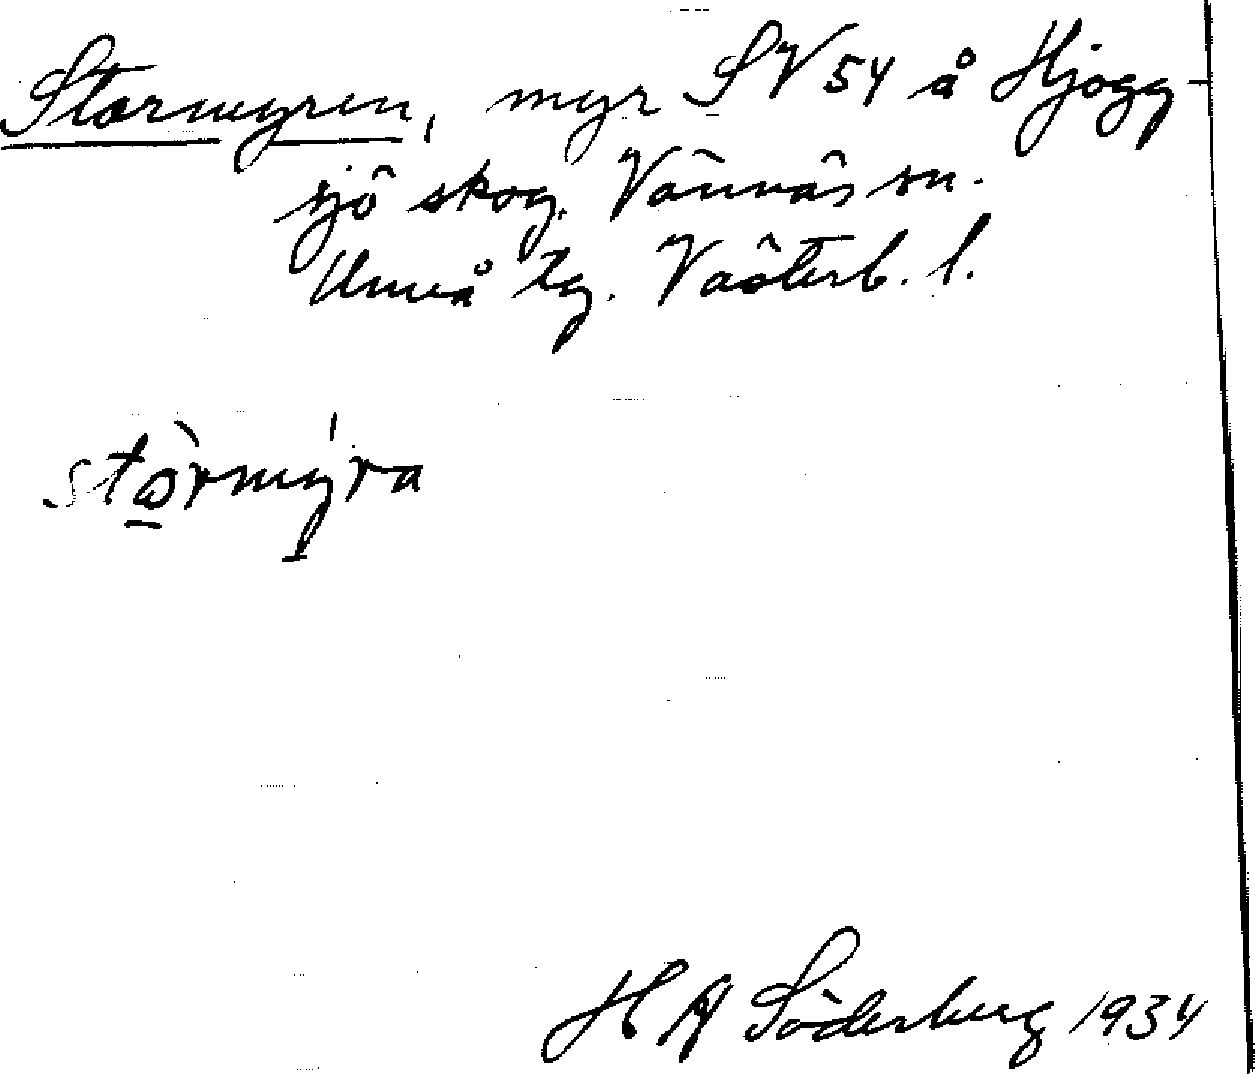 Stormyren, myr SV 54 å Hjögg-
sjö skog. Vännäs sn.
Umeå tg. Västerb. l.
stòrmy̍ra
H Söderberg 1934